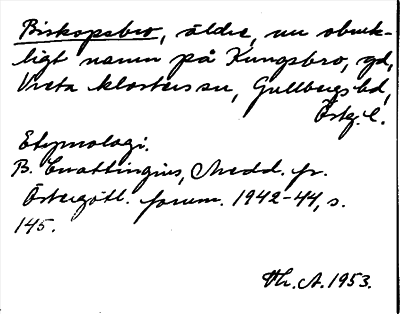 Biskopsbro, äldre, nu obruk-
ligt namn på Kungsbro, gd,
Vreta klosters sn, Gullbergs hd,
Östg. l.
Etymologi.
B. Cnattingius, Medd. fr.
Östergötl. fornm. 1942-44, s.
145.
A. 1953.